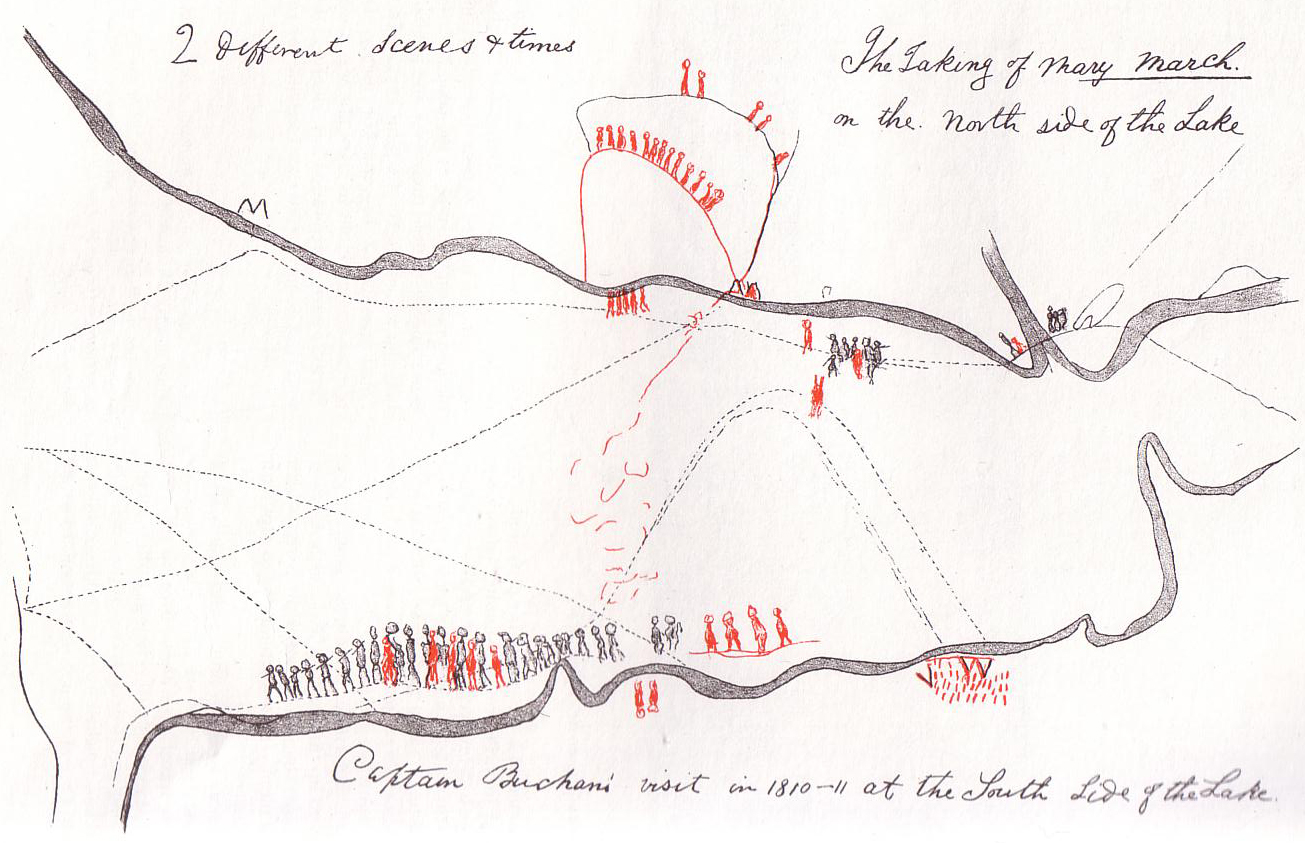 2 Different Scenes & times
The Taking of Mary March.
on the. North side of the Lake
Captain Buchans visit in 1810–11 at the South Side of the Lake.